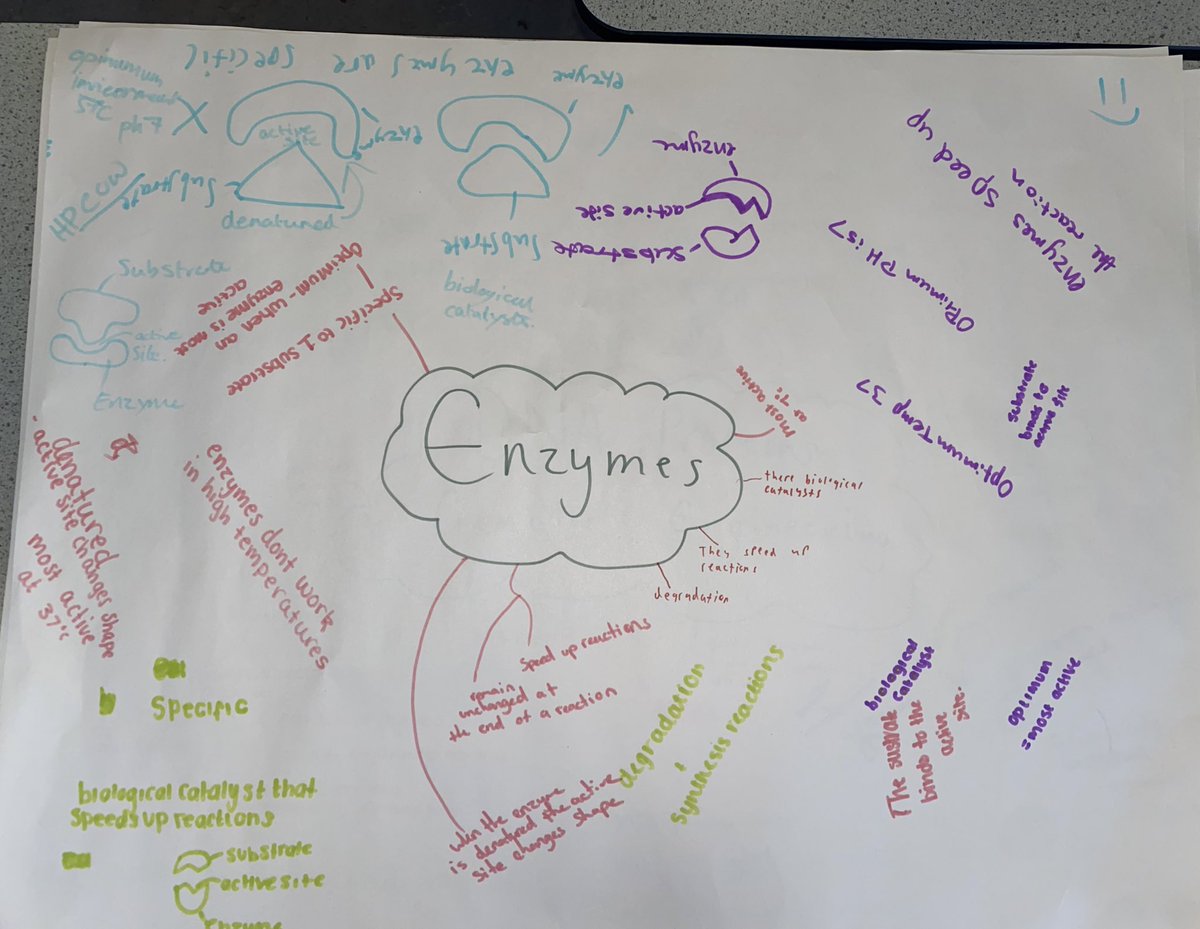 enzymes are specific
opimumum
enviroment
ph 7
HPCOW
Substrate
active
site
enzyme
denatured
enzyme
Substrate
biological
catalysts.
Substrate
active
site.
Enzyme
enzyme
active site
substrate
enzymes speed up
the reaction
OPtimum PH is 7
Optimum Temp 37
substrate
binds to
active site
optimum - when an
enzyme is most
active
Specific to 1 substrate
Enzymes
most active
at 7.
there biological
catalysts
They speed up
reactions
degradation
denatured
- active site changes shape
most active
at 37°c
enzymes dont work
in high temperatures
Speed up reactions
remain
unchanged at
the end of a reaction
when the enzyme
is denatured the active
site changes shape
degradation
+
Synthesis reactions
biological
catalyst
The sustrate
binds to the
active
site.
optimum
=most active
Specific
biological catalyst that
Speeds up reactions
substrate
active site
enzyme